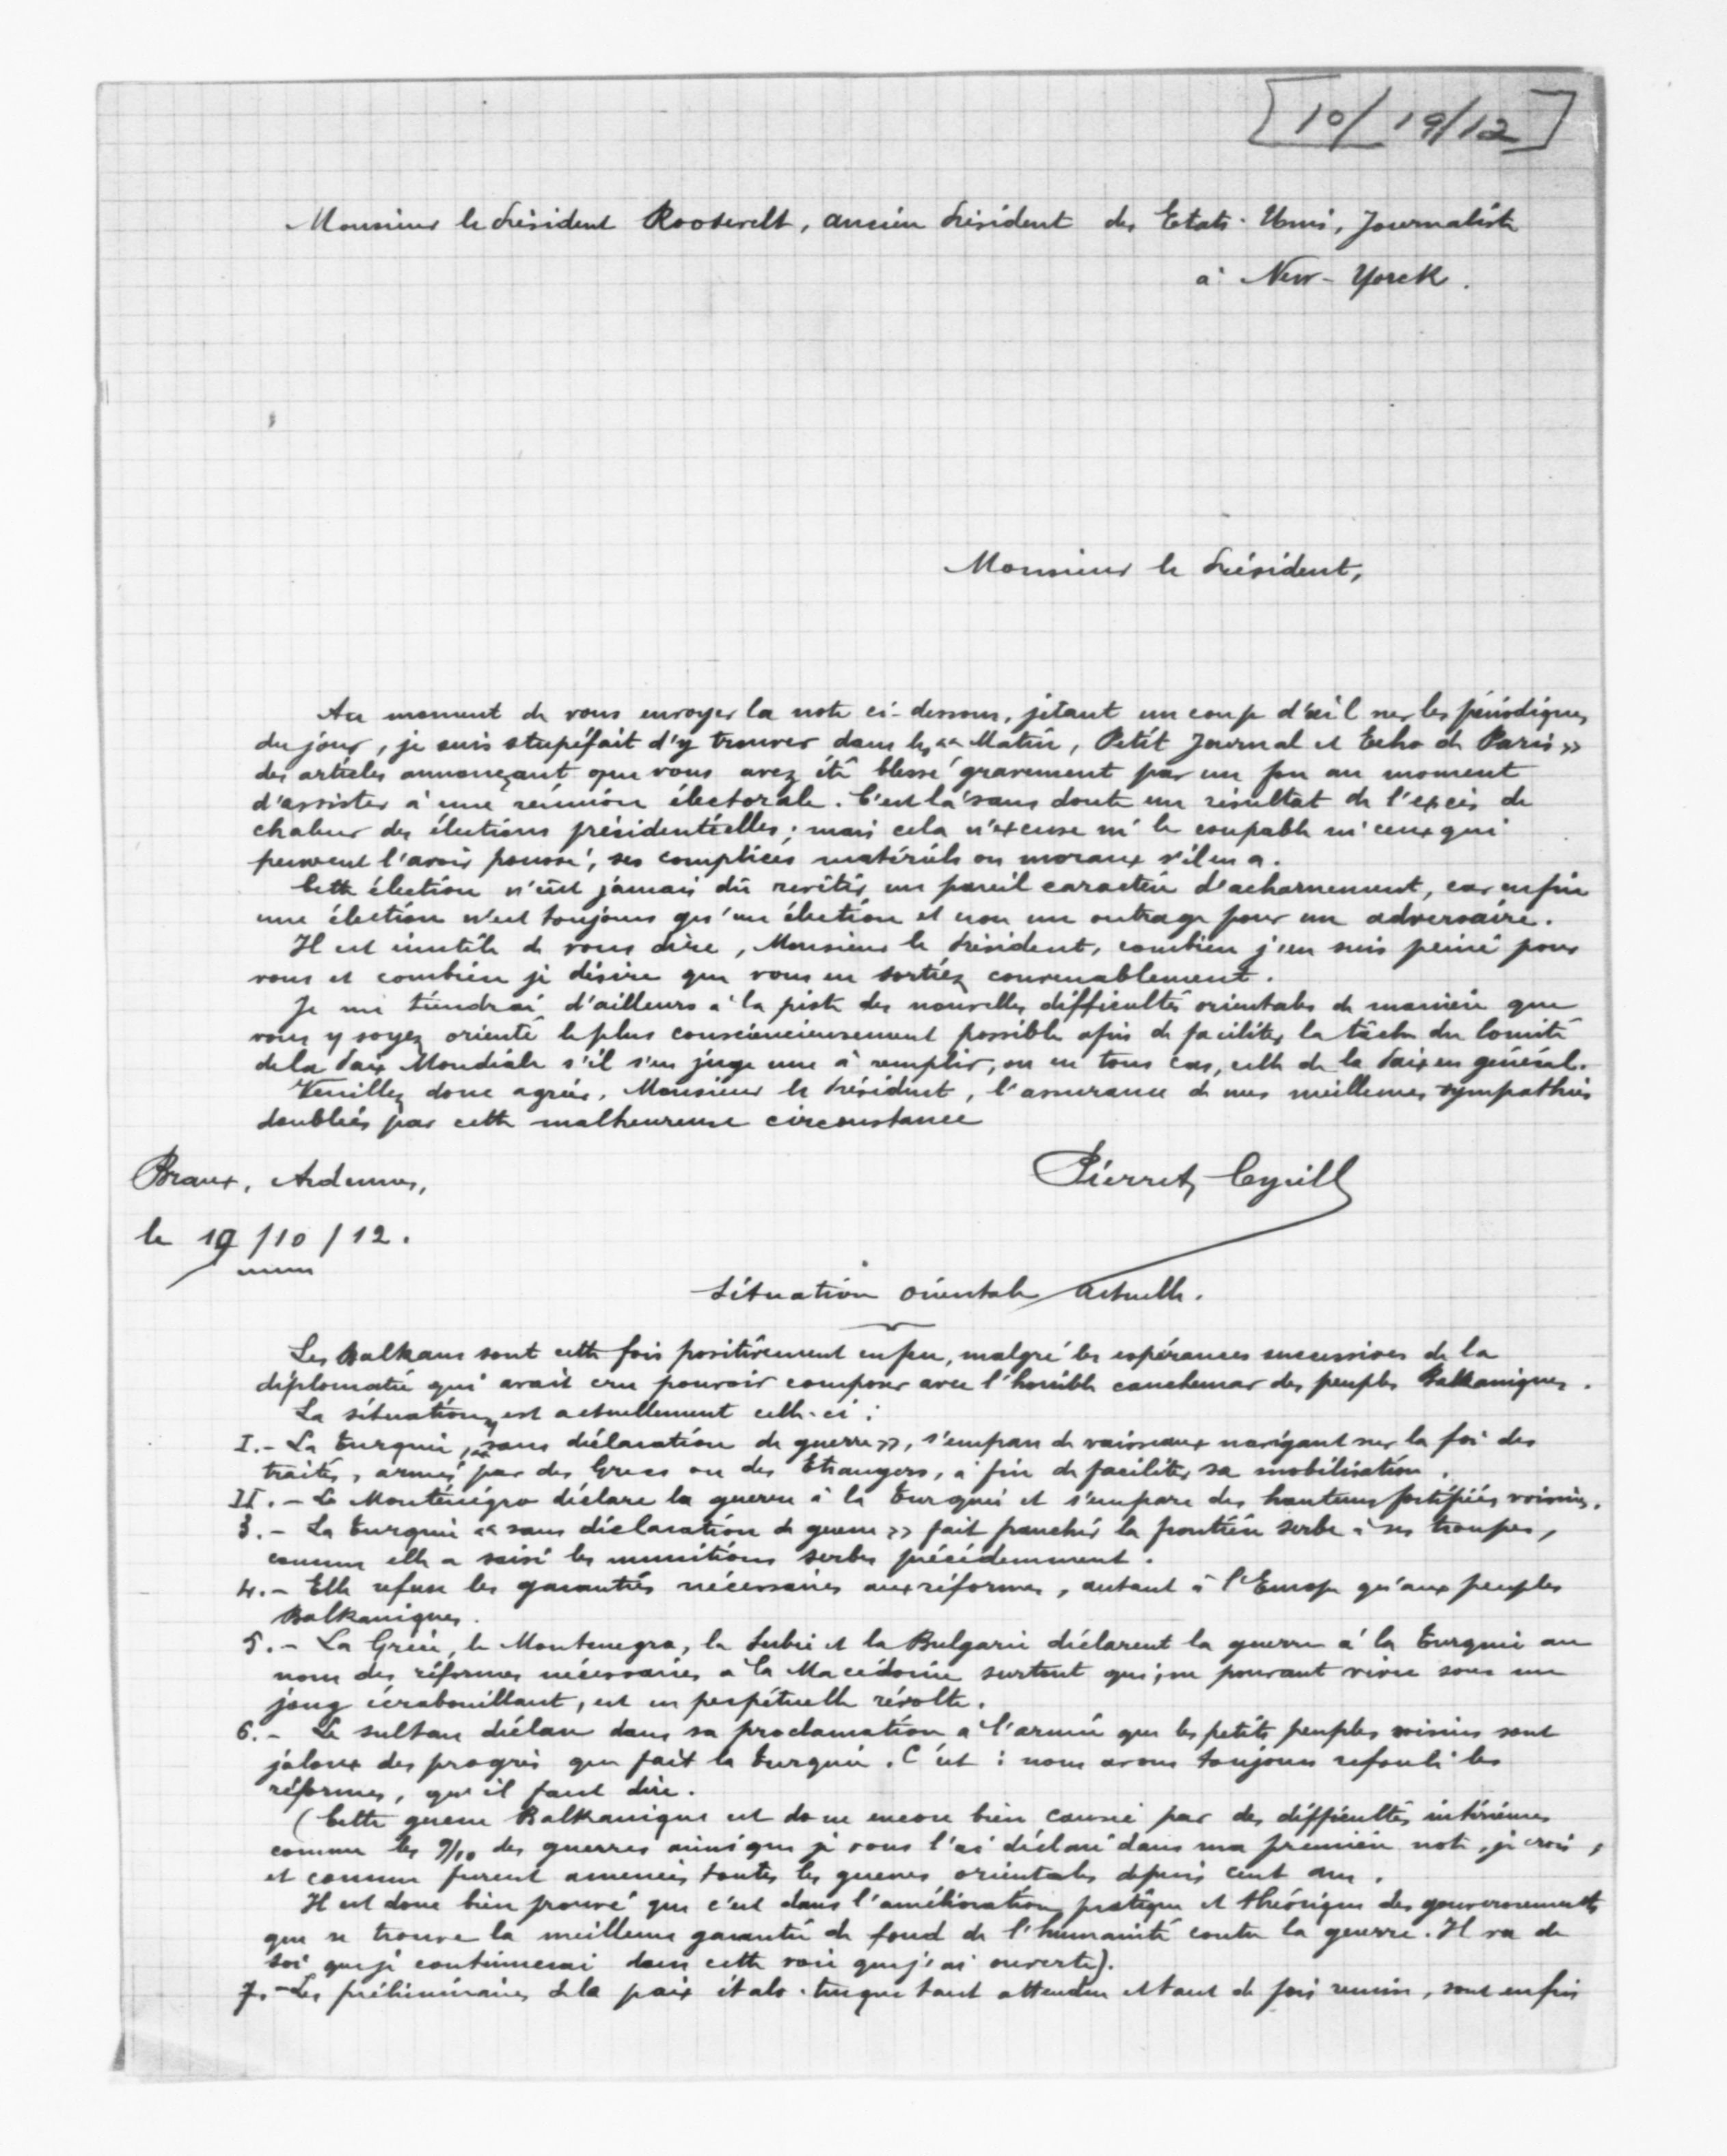 [10/19/12]
Monsieur le Président Roosevelt, ancien Président des Etats-Unis, Journaliste
à New-Yorck.
Monsieur le Président,
Au moment de vous envoyer la note ci-dessous, jetant un coup d'œil sur les périodiques
du jour, je suis stupéfait d'y trouver dans les "Matin, Petit Journal et Echo de Paris»
des articles annonçant que vous avez été blessé gravement par un fou au moment
d'assister à une réunion électorale. C'est là sans doute un résultat de l'excès de
chaleur des élections présidentielles; mais cela n'excuse ni le coupable ni ceux qui
peuvent l'avoir poussé, ses complices matériels ou moraux s'il en a.
Cette élection n'eût jamais dû revêtir un pareil caractère d'acharnement, car enfin
une élection n'est toujours qu'une élection et non un outrage pour un adversaire.
Il est inutile de vous dire, Monsieur le Président, combien j'en suis peiné pour
vous et combien je désire que vous en sortiez convenablement.
Je me tiendrai d'ailleurs à la piste des nouvelles difficultés orientales de manière que
vous y soyez orienté le plus consciencieusement possible afin de faciliter la tâche du Comité
de la Paix Mondiale s'il s'en juge une à remplir, ou en tous cas, celle de la Paix en général.
Veuillez donc agréer, Monsieur le Président, l'assurance de mes meilleures sympathies
doublées par cette malheureuse circonstance
Braux, Ardennes,
Pierret Cyrill
le 19/10/12.
Situation orientale actuelle.
Les Balkans sont cette fois positivement en feu, malgré les espérances successives de la
diplomatie qui avait cru pouvoir composer avec l'horrible cauchemar des peuples Balkaniques.
La situation est actuellement celle-ci:
I.- La Turquie, "sans déclaration de guerre», s'empare de vaisseaux navigant sur la foi des
traités, armés par des Grecs ou des Etrangers, à fin de faciliter sa mobilisation.
II.- Le Monténégro déclare la guerre à la Turquie et s'empare des hauteurs fortifiées voisines.
3.- La Turquie "sans déclaration de guerre» fait franchir la frontière serbe à ses troupes,
comme elle a saisi les munitions serbes précédemment.
4.- Elle refuse les garanties nécessaires aux réformes, autant à l'Europe qu'aux peuples
Balkaniques.
5.- La Grèce, le Montenegro, la Serbie et la Bulgarie déclarent la guerre à la Turquie au
nom des réformes nécessaires à la Macédoine surtout qui, ne pouvant vivre sous un
joug écrabouillant, est en perpétuelle révolte.
6.- Le sultan déclare dans sa proclamation à l'armée que les petits peuples voisins sont
jaloux des progrès que fait la Turquie. C'est: nous avons toujours refoulé les
réformes, qu'il faut dire.
(Cette guerre Balkanique est donc encore bien causée par des difficultés intérieures
comme les 9/10 des guerres ainsi que je vous l'ai déclaré dans ma première note, je crois,
et comme furent amenées toutes les guerres orientales depuis cent ans.
Il est donc bien prouvé que c'est dans l'amélioration pratique et théorique des gouvernements
que se trouve la meilleure garantie de fond de l'humanité contre la guerre. Il va de
soi que je continuerai dans cette voie que j'ai ouverte).
7.- Les préliminaires de la paix italo-turque tant attendue et tant de fois remise, sont enfin